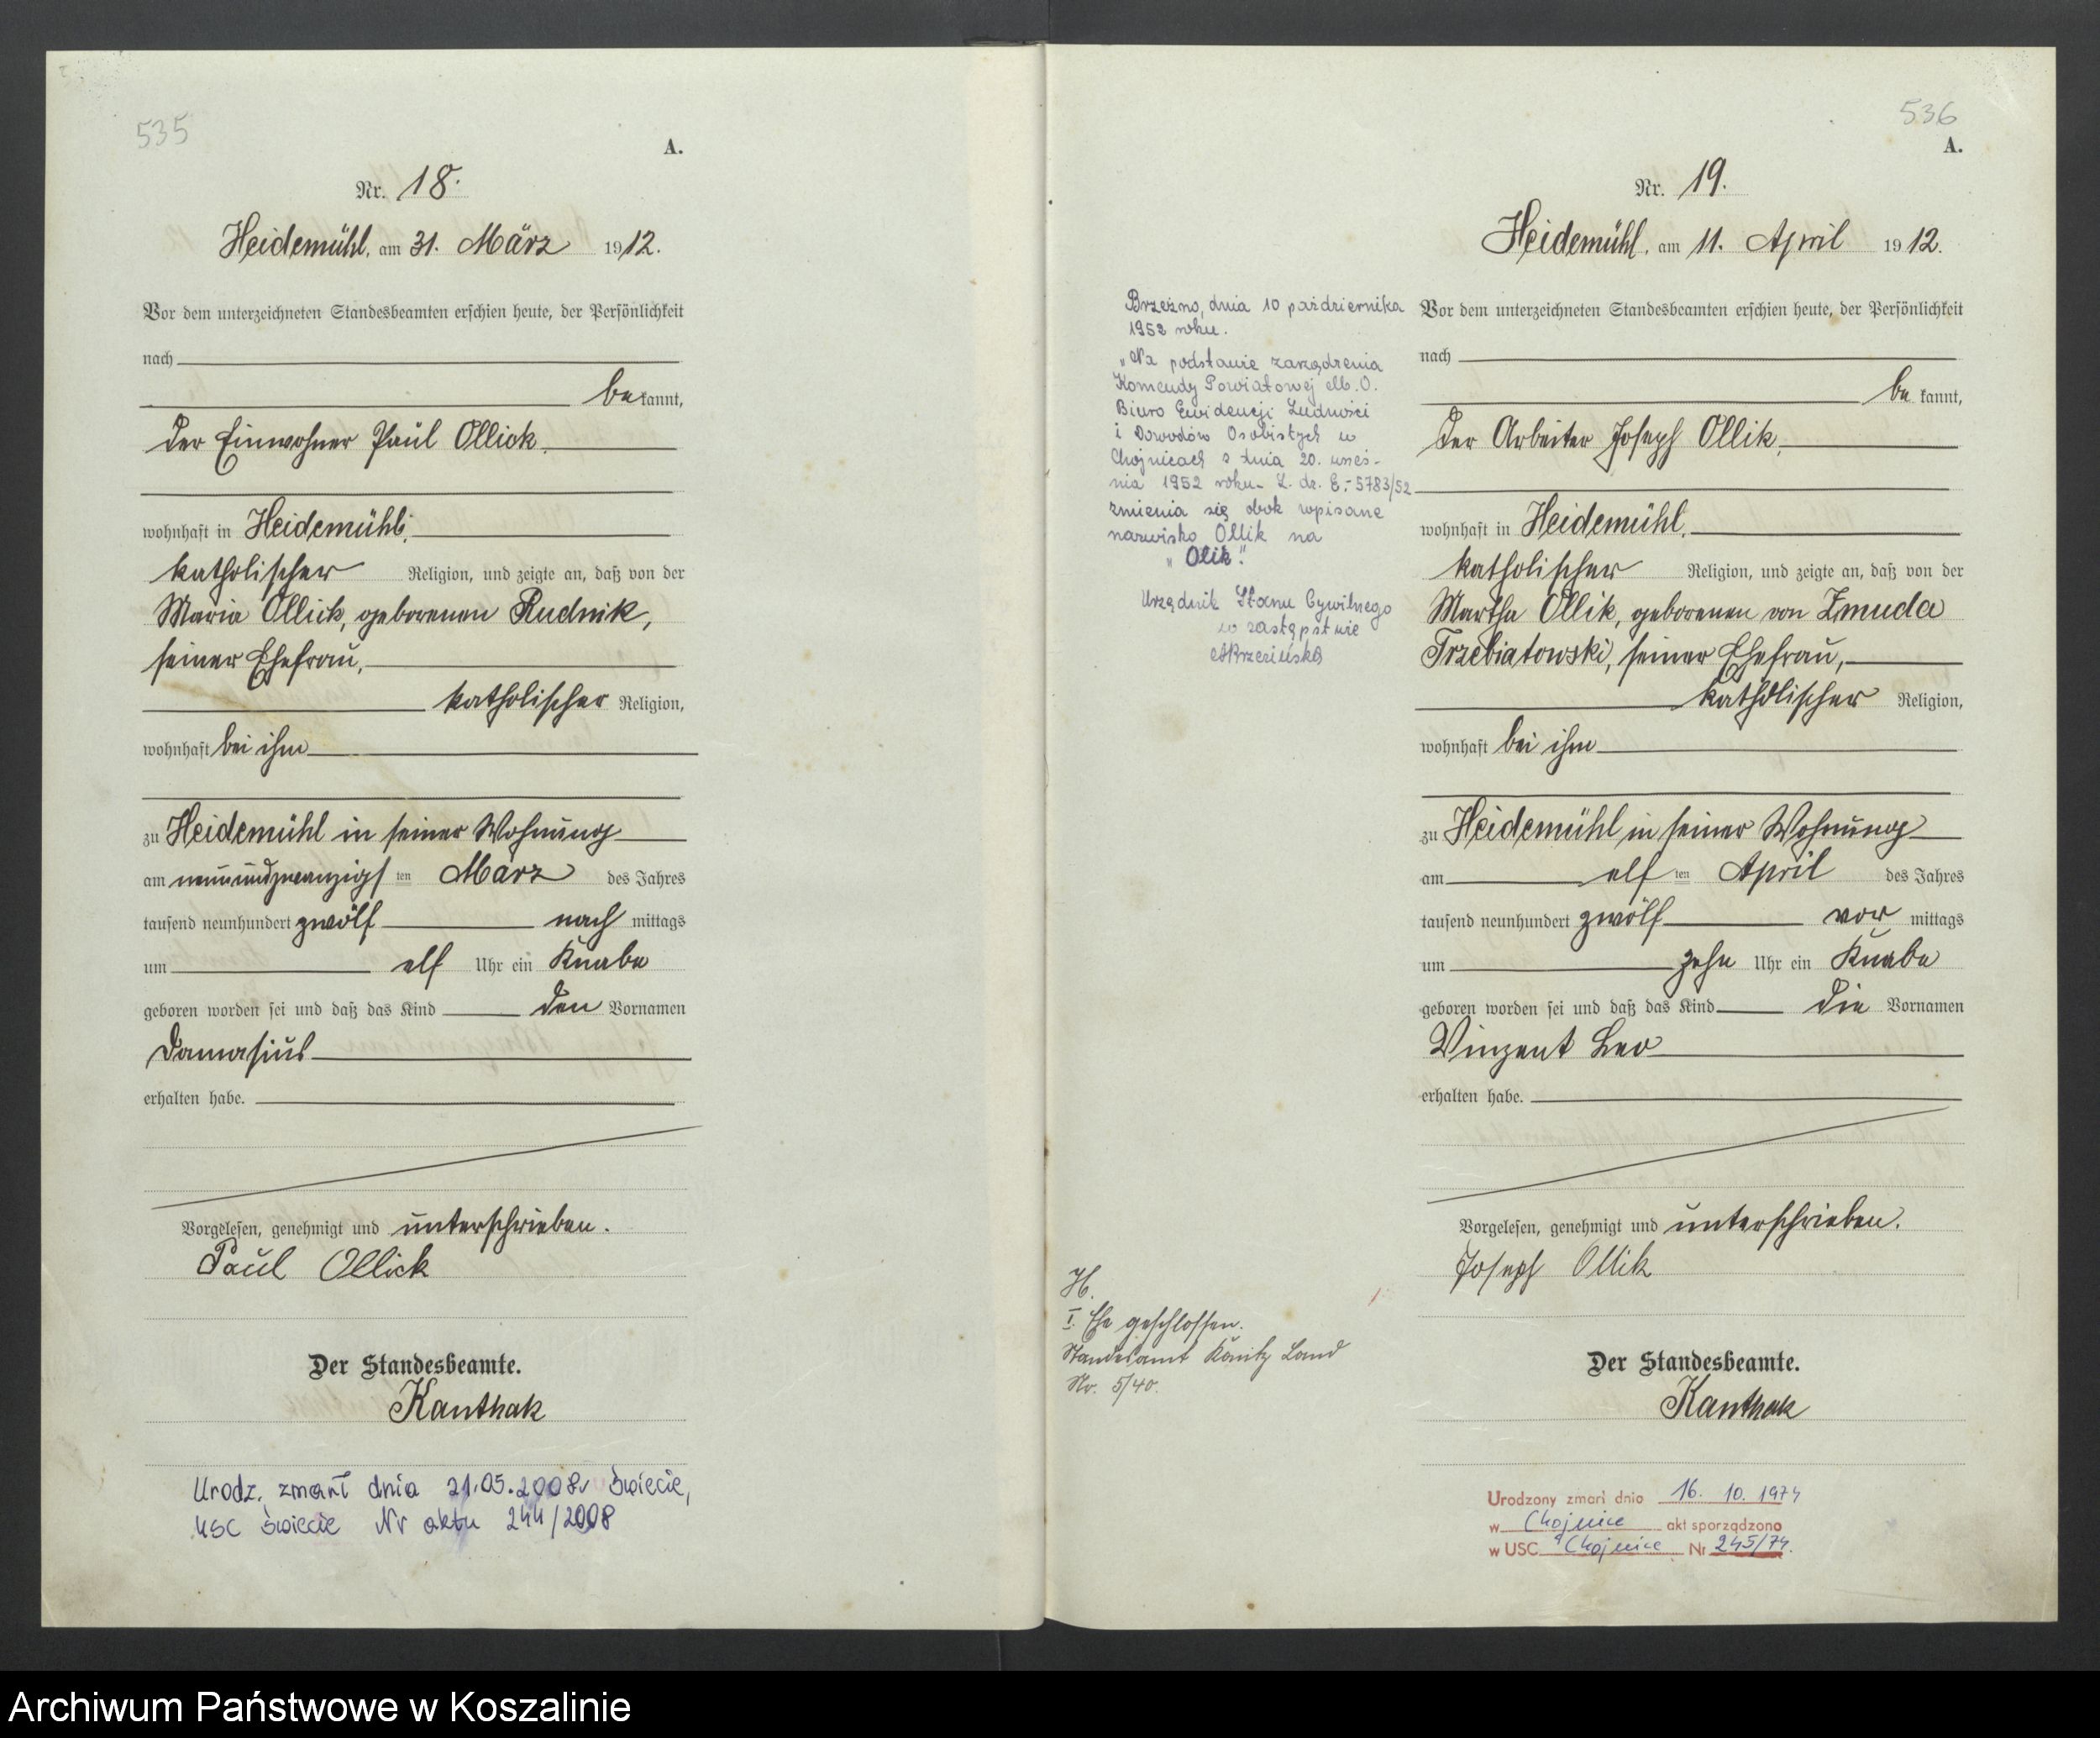 535
A.
Nr. 18.
Heidemühl, am 31. März 1912.
Vor dem unterzeichneten Standesbeamten erschien heute, der Persönlichkeit
nach
be kannt,
der Einwohner Paul Ollick,
wohnhaft in Heidemühl,
katholischer Religion, und zeigte an, daß von der
Maria Ollick, geborenen Rudnik,
seiner Ehefrau,
katholischer Religion,
wohnhaft bei ihm
zu Heidemühl in seiner Wohnung
am neunundzwanzigsten März des Jahres
tausend neunhundert zwölf nach mittags
um elf Uhr ein Knabe
geboren worden sei und daß das Kind den Vornamen
Damasius
erhalten habe.
Vorgelesen, genehmigt und unterschrieben.
Paul Ollick
Der Standesbeamte.
Kanthak
Urodz. zmarł dnia 21.05.2008r Świecie,
USC Świecie Nr aktu 244/2008
536
A.
Nr. 19.
Heidemühl, am 11. April 1912.
Brzeźno, dnia 10 października
1952 roku.
„Na podstawie zarządzenia
Komendy Powiatowej M.O.
Biuro Ewidencji Ludności
i Dowodów Osobistych w
Chojnicach z dnia 20. wrześ-
nia 1952 roku - L. dz. E.-5783/52
zmienia się obok wpisane
nazwisko Ollik na
„Olik."
Urzędnik Stanu Cywilnego
w zastępstwie
Vor dem unterzeichneten Standesbeamten erschien heute, der Persönlichkeit
nach
be kannt,
der Arbeiter Joseph Ollik,
wohnhaft in Heidemühl,
katholischer Religion, und zeigte an, daß von der
Martha Ollik, geborenen von Zmuda
Trzebiatowski, seiner Ehefrau,
katholischer Religion,
wohnhaft bei ihm
zu Heidemühl in seiner Wohnung
am elf ten April des Jahres
tausend neunhundert zwölf vor mittags
um zehn Uhr ein Knabe
geboren worden sei und daß das Kind die Vornamen
Vinzent Leo
erhalten habe.
Vorgelesen, genehmigt und unterschrieben.
Joseph Ollik
H.
I. Ehe geschlossen.
Standesamt Konitz Land
Nr. 5/40.
Der Standesbeamte.
Kanthak
Urodzony zmarł dnia 16. 10. 1974
w Chojnice akt sporządzono
w USC Chojnice Nr 245/74.
Archiwum Państwowe w Koszalinie